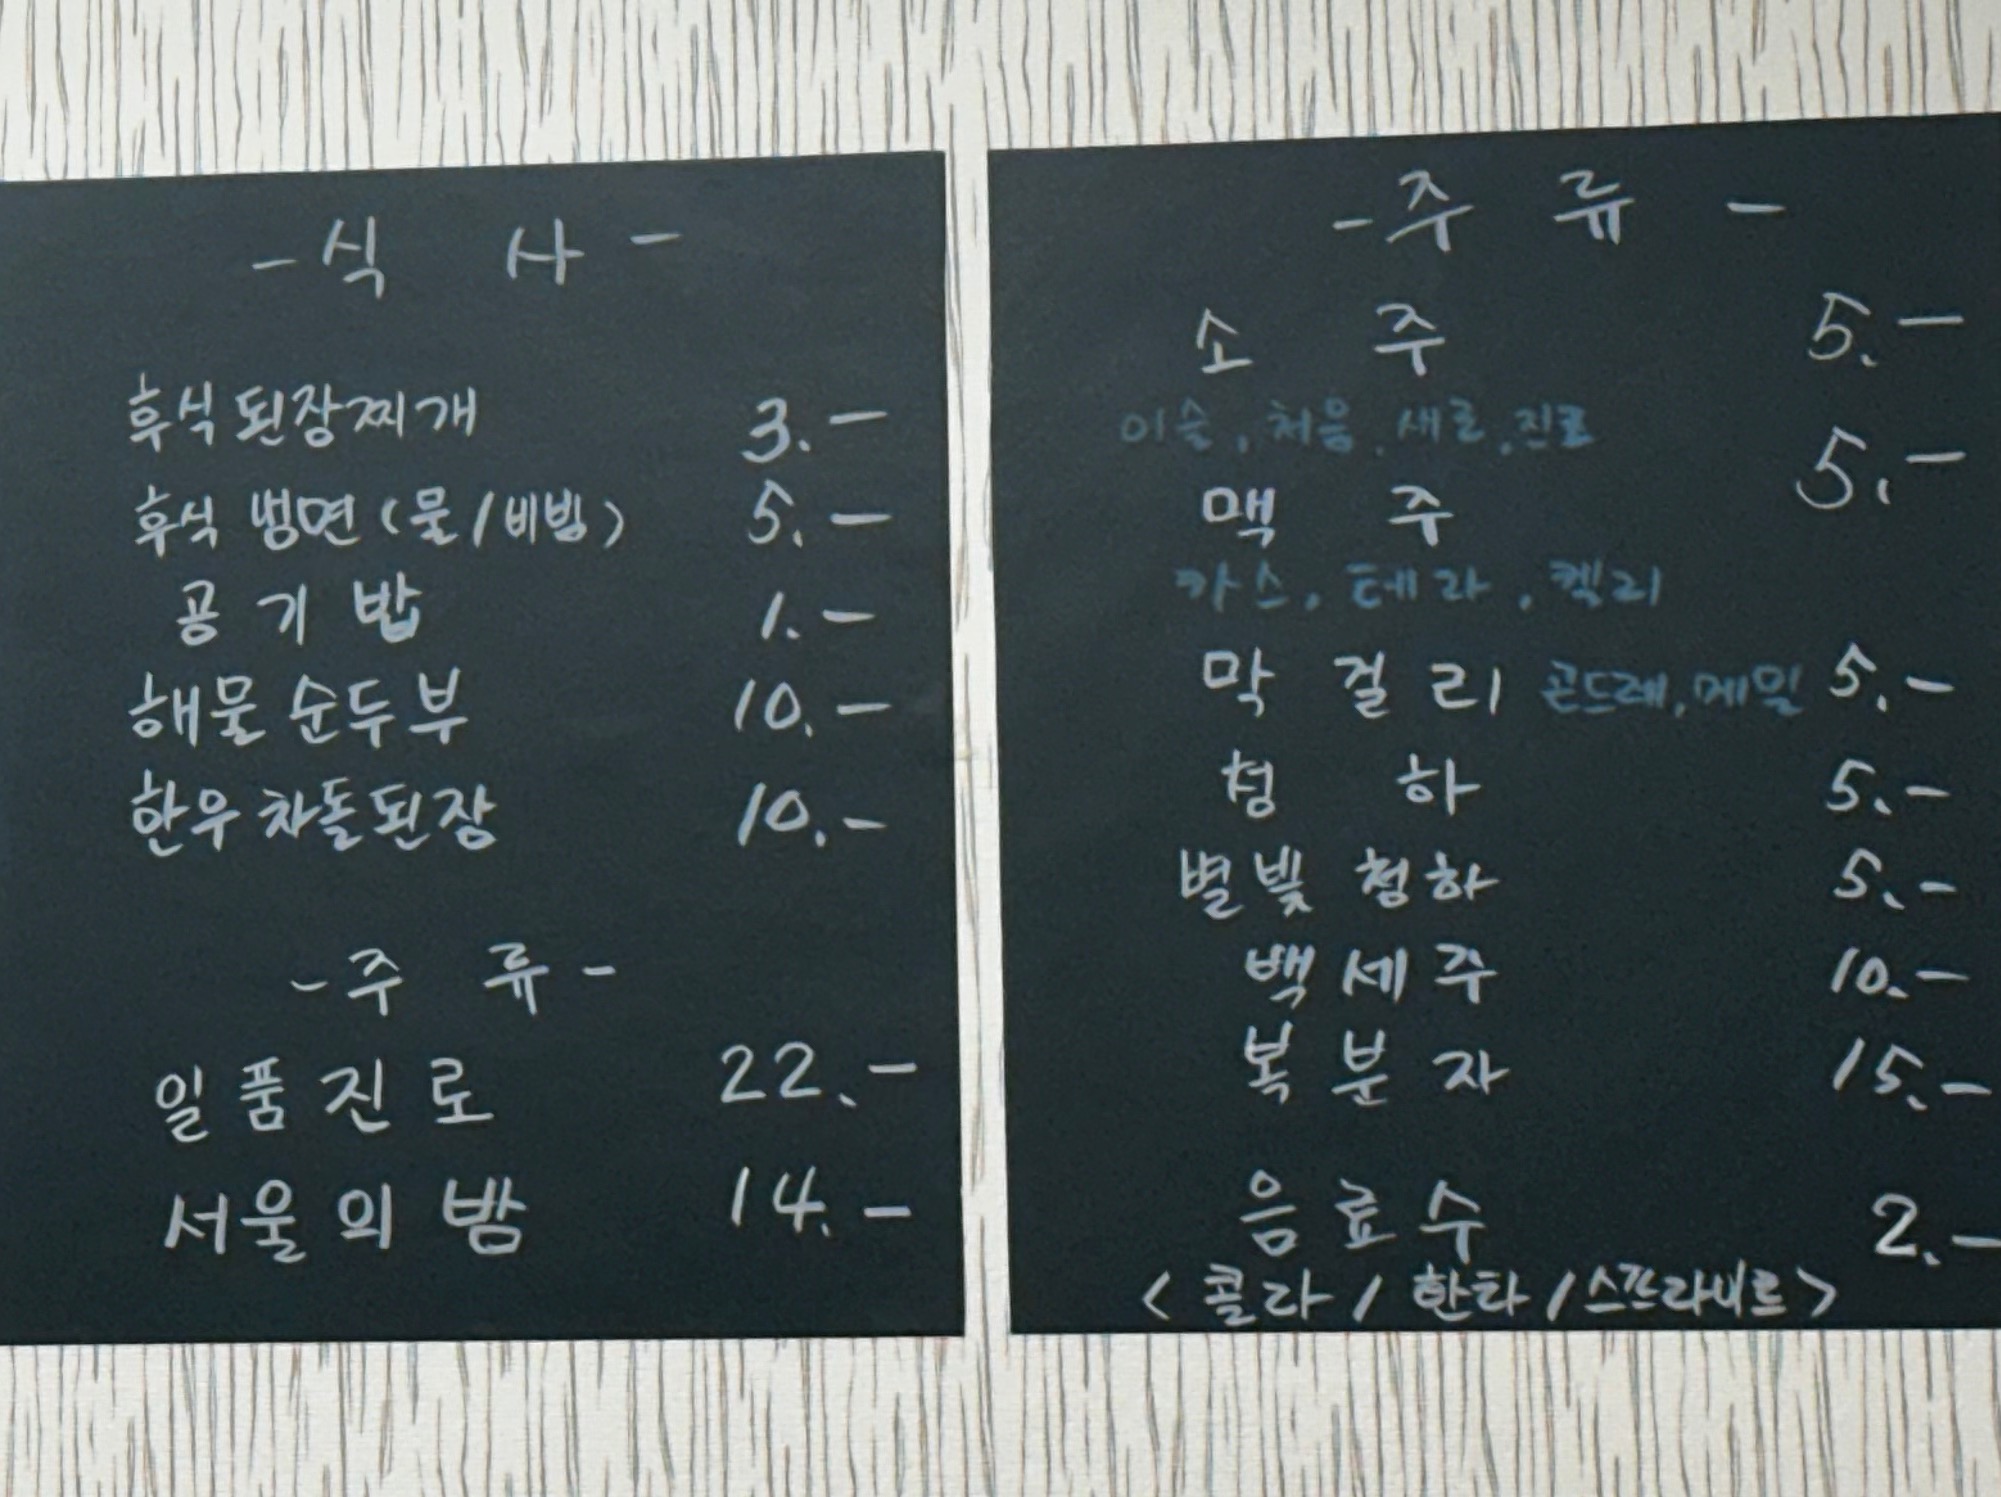 - 식 사 -
후식 된장찌개 3.-
후식 냉면 (물/비빔) 5.-
공기밥 1.-
해물순두부 10.-
한우차돌된장 10.-
- 주 류 -
일품진로 22.-
서울의밤 14.-
- 주 류 -
소 주 5.-
이슬, 처음, 새로, 진로
맥 주 5.-
카스, 테라, 켈리
막걸리 곤드레, 메밀 5.-
청 하 5.-
별빛 청하 5.-
백세주 10.-
복분자 15.-
음료수 2.-
<콜라/환타/스프라이트>